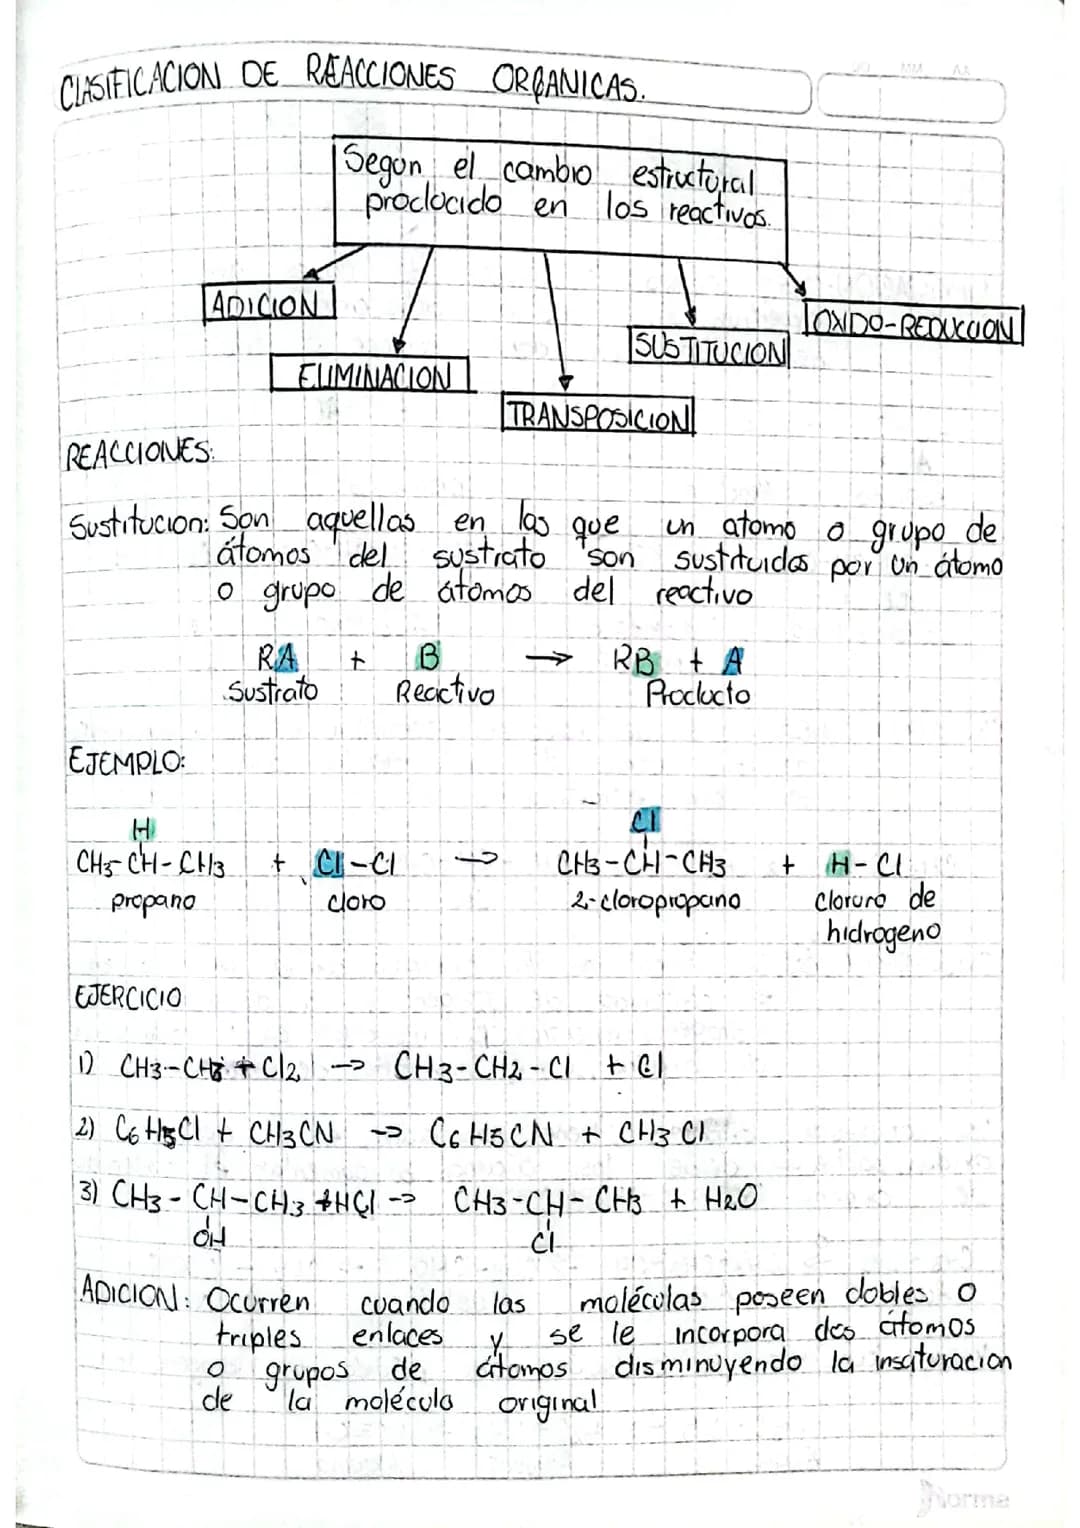 CLASIFICACION DE REACCIONES ORGANICAS.
Segun el cambio estructural
producido en los reactivos.
ADICION
OXIDO-REDUCCION
SUSTITUCION
ELIMINACION
TRANSPOSICION
REACCIONES:
Sustitucion: Son aquellas en las que un atomo o grupo de
átomos del sustrato son sustituidos por un átomo
o grupo de átomos del reactivo
RA + B → RB + A
Sustrato Reactivo Producto
EJEMPLO:
H Cl
CH3-CH-CH3 + Cl-Cl → CH3-CH-CH3 + H-Cl
propano cloro 2-cloropropano cloruro de
hidrogeno
EJERCICIO
1) CH3-CH3 + Cl2 → CH3-CH2-Cl + Cl
2) C6H5Cl + CH3CN → C6H5CN + CH3Cl
3) CH3-CH-CH3 + HCl → CH3-CH-CH3 + H2O
OH Cl
ADICION: Ocurren cuando las moléculas poseen dobles o
triples enlaces y se le incorpora dos átomos
o grupos de átomos disminuyendo la insaturacion
de la molécula original
Norma